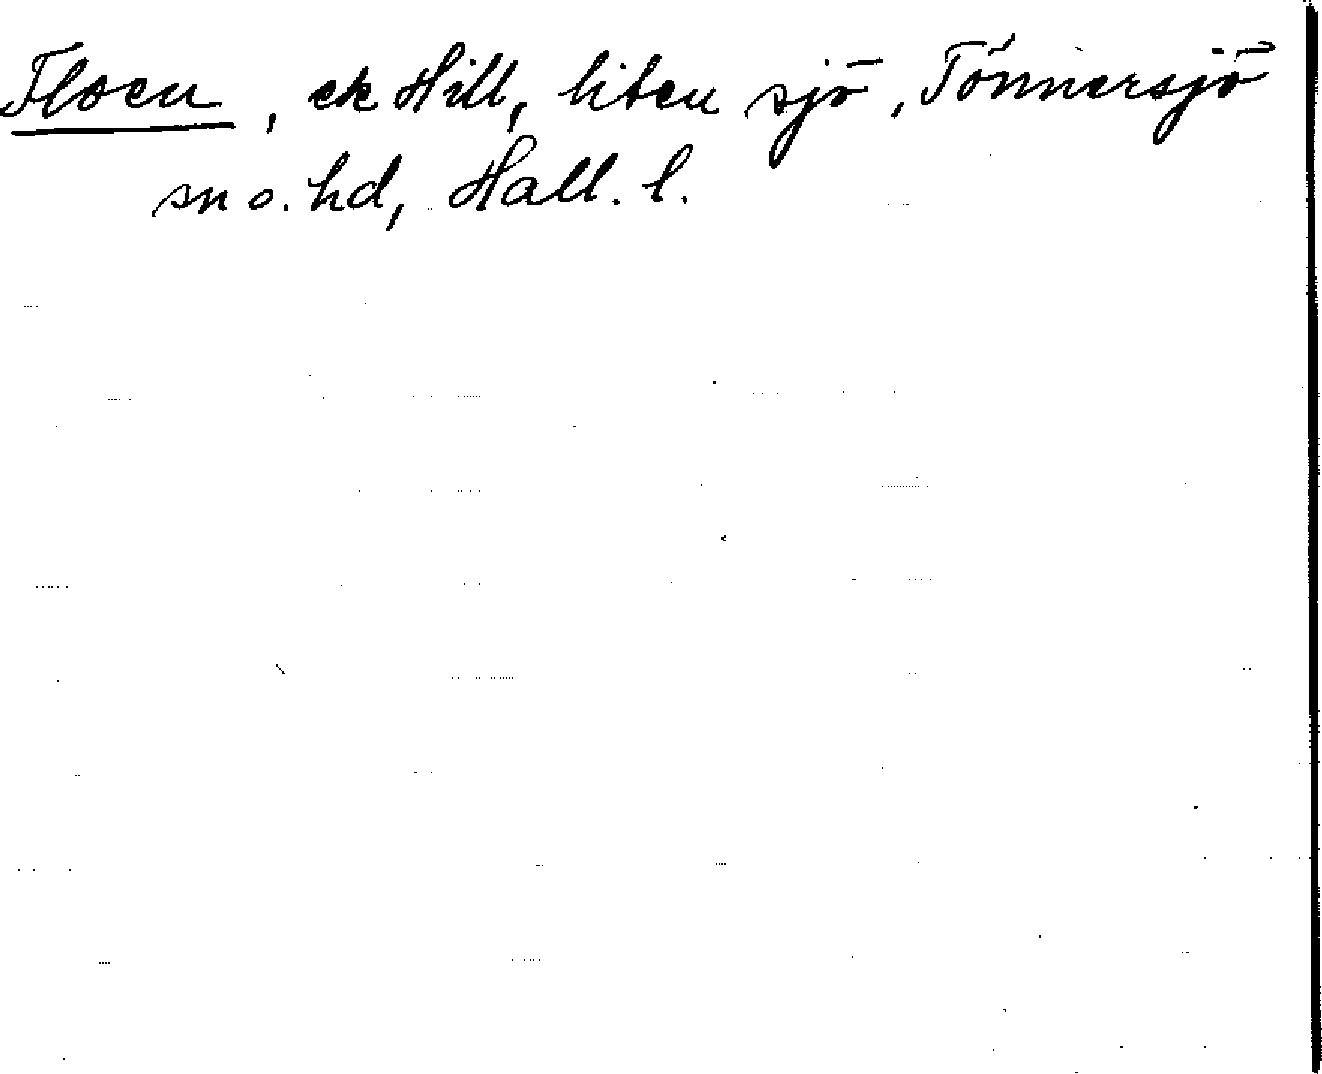 Floen, ek Hill, liten sjö, Tönnersjö
sn o. hd, Hall. l.